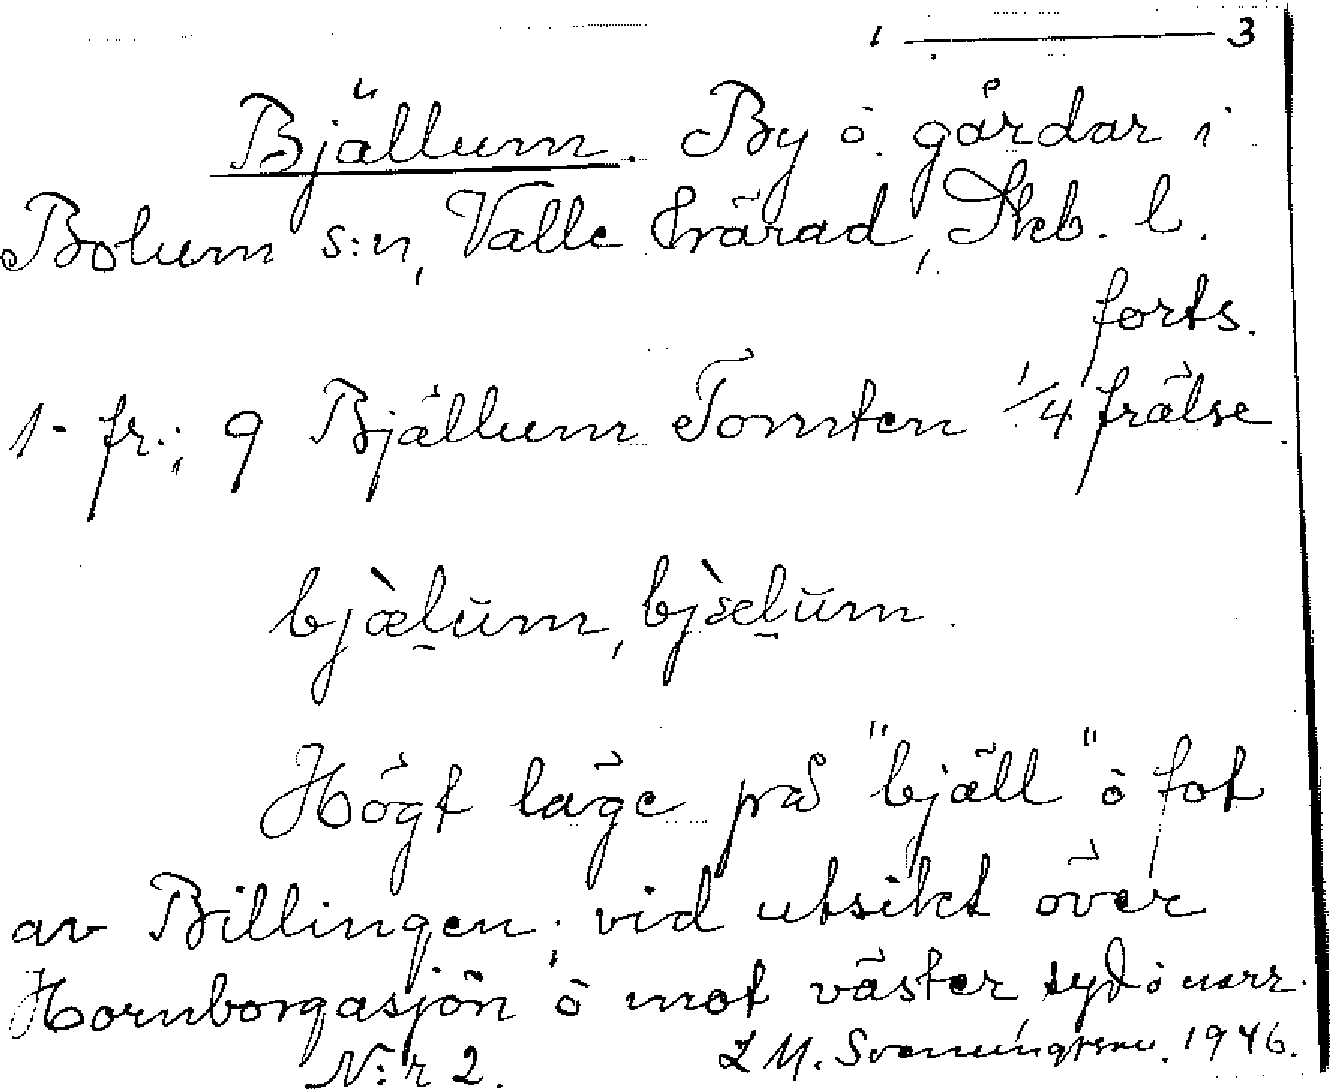 1 — 3
Bjällum. By ò gårdar i
Bolum s:n, Valle härad, Skb. l.
forts.
1- fr.; 9 Bjällum Tomten 1/4 frälse
bjæ̀l̠ŭm, bjæ̀l̠ŭm.
Högt läge på "bjäll" ò fot
av Billingen; vid utsikt över
Hornborgasjön ò mot väster syd ò norr.
N:r 2. L M. Svenningsson. 1946.